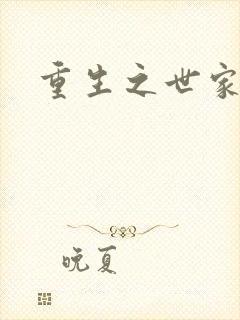 重生之世家
晚夏